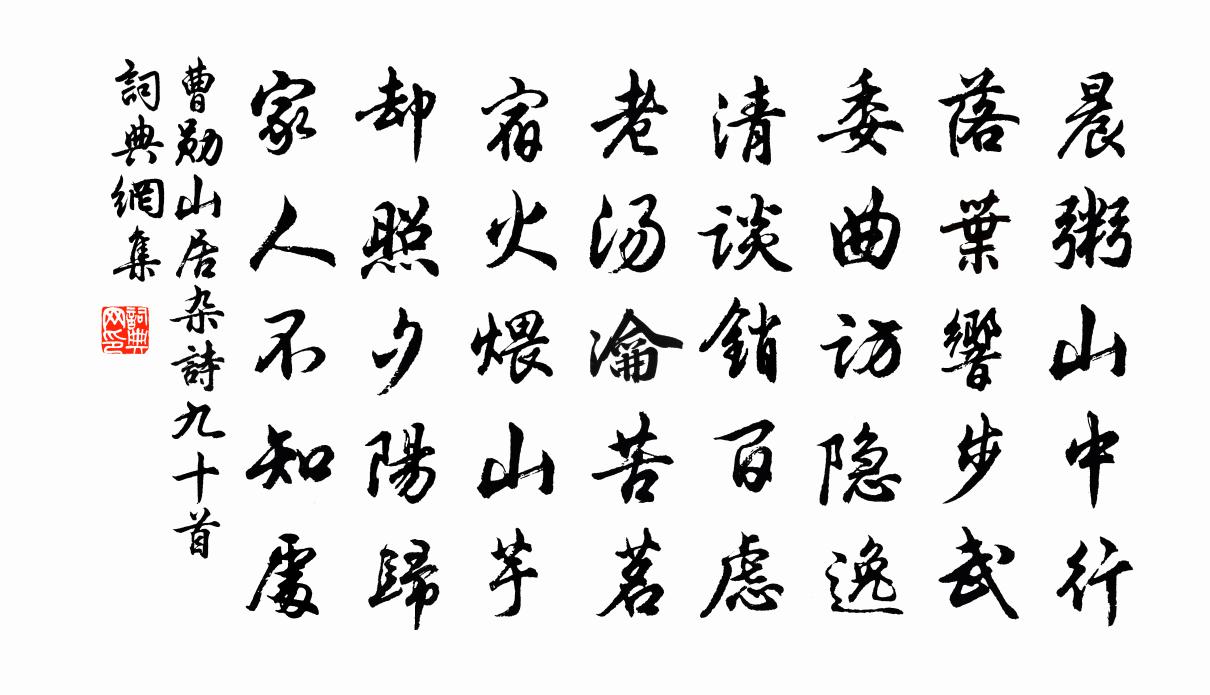 晨粥山中行
落葉響步武
委曲訪隐逸
清談銷百慮
老汤瀹苦茗
宿火煨山芋
却照夕陽歸
家人不知處
曹勛山居杂詩九十首
詞典網集
詞典网印